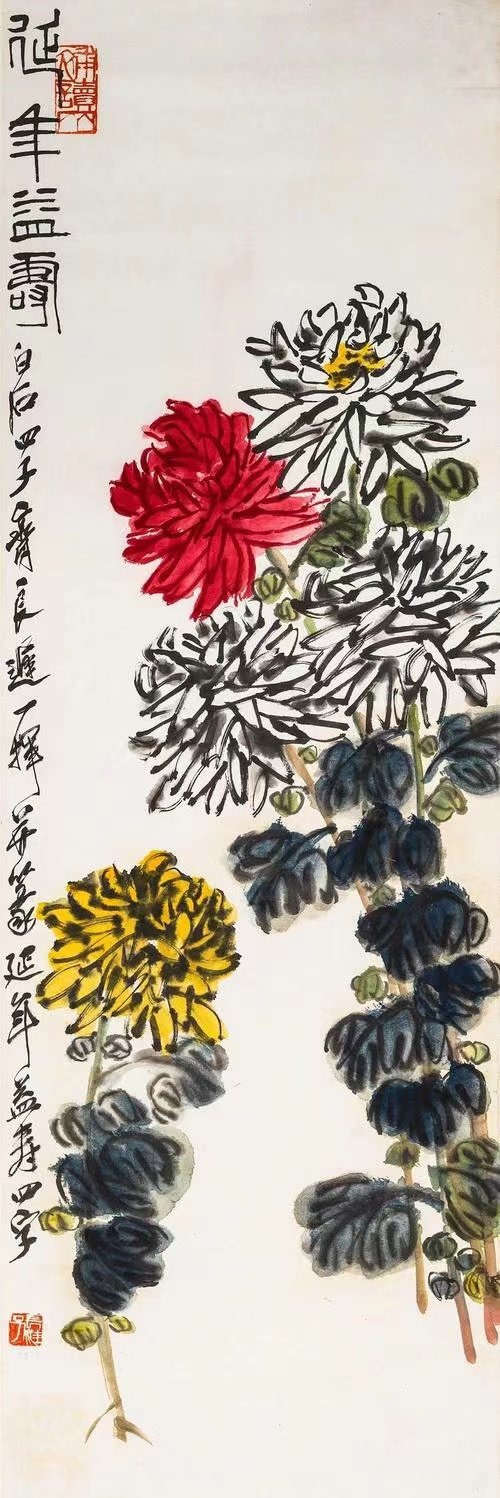 延年益壽
白石四子齊良遲一揮并篆延年益寿四字